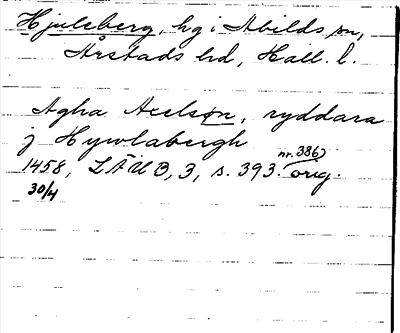 Hjulsberg, hg i Abilds sn,
Årstads hd, Hall. l.
Agha Axelsøn, ryddara
j Hywlabergh
nr. 386)
1458, LÄUB, 3, s. 393. orig.
30/4